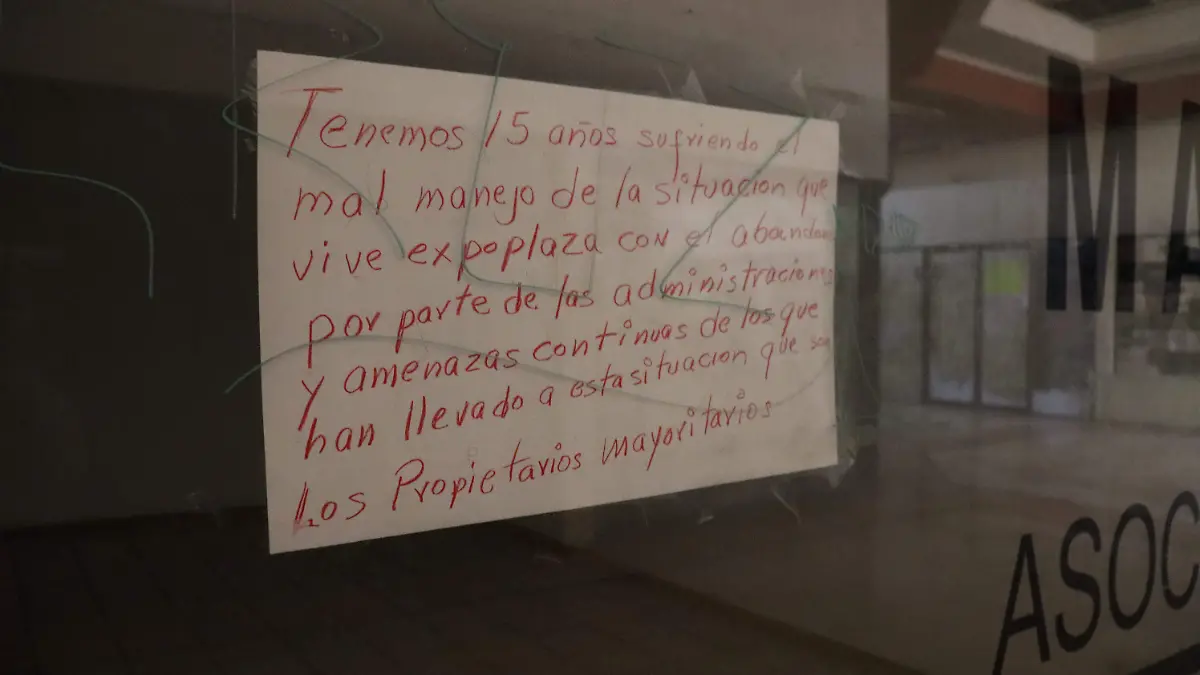 Tenemos 15 años sufriendo el
mal manejo de la situacion que
vive expoplaza con el abandono
por parte de las administraciones
y amenazas continuas de los que
han llevado a esta situacion que son
Los Propietarios mayoritarios
MA
ASOC